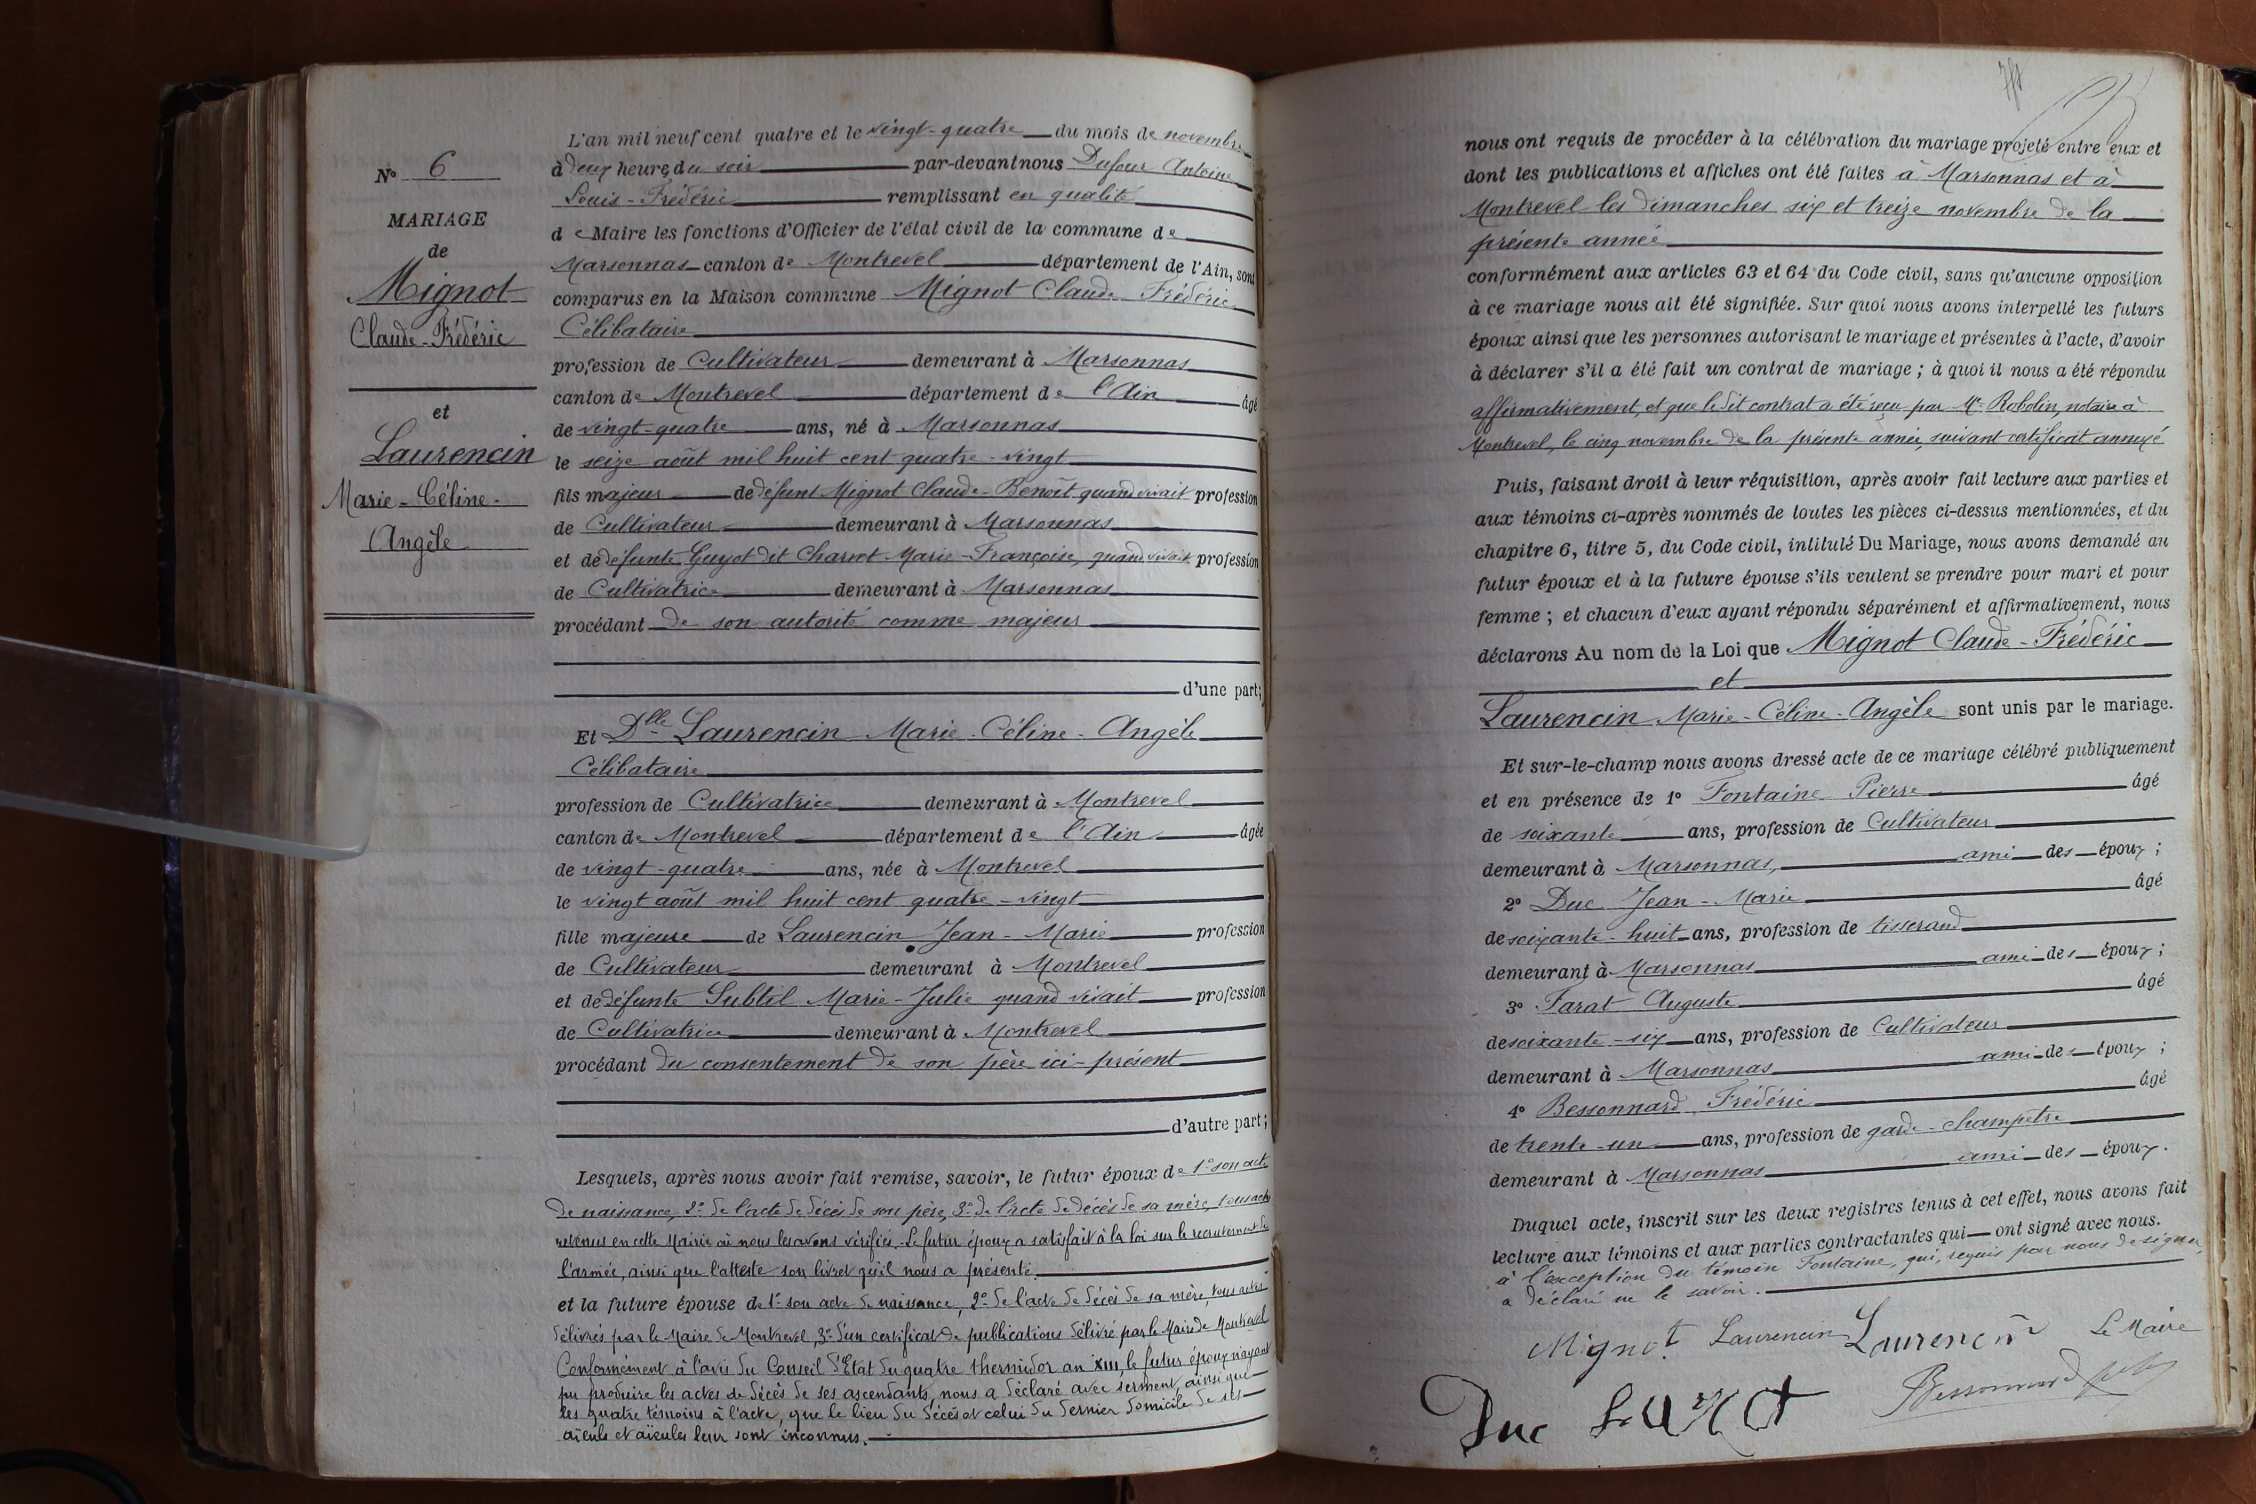 N° 6
MARIAGE
de
Mignot
Claude-Frédéric
et
Laurencin
Marie-Céline-
Angèle
L'an mil neuf cent quatre et le vingt-quatre du mois de novembre
à deux heures du soir par-devant nous Dufour Antoine
Louis-Frédéric remplissant en qualité
de Maire les fonctions d'Officier de l'état civil de la commune de
Marsonnas canton de Montrevel département de l'Ain, sont
comparus en la Maison commune Mignot Claude Frédéric
Célibataire
profession de Cultivateur demeurant à Marsonnas
canton de Montrevel département de l'Ain âgé
de vingt-quatre ans, né à Marsonnas
le seize août mil huit cent quatre-vingt
fils majeur de défunt Mignot Claude-Benoît quand vivait profession
de Cultivateur demeurant à Marsonnas
et de défunte Guyot dit Charvet Marie-Françoise, quand vivait profession
de Cultivatrice demeurant à Marsonnas
procédant de son autorité comme majeur
d'une part;
Et Dlle Laurencin Marie-Céline-Angèle
Célibataire
profession de Cultivatrice demeurant à Montrevel
canton de Montrevel département de l'Ain âgée
de vingt-quatre ans, née à Montrevel
le vingt août mil huit cent quatre-vingt
fille majeure de Laurencin Jean-Marie profession
de Cultivateur demeurant à Montrevel
et de défunte Subtil Marie-Julie quand vivait profession
de Cultivatrice demeurant à Montrevel
procédant du consentement de son père ici-présent
d'autre part;
Lesquels, après nous avoir fait remise, savoir, le futur époux de 1° son acte
de naissance, 2° de l'acte de décès de son père, 3° de l'acte de décès de sa mère, tous actes
retenus en cette Mairie où nous les avons vérifiés. Le futur époux a satisfait à la loi sur le recrutement de
l'armée, ainsi que l'atteste son livret qu'il nous a présenté.
et la future épouse de 1° son acte de naissance, 2° de l'acte de décès de sa mère, tous actes
délivrés par le Maire de Montrevel, 3° d'un certificat de publications délivré par le Maire de Montrevel
Conformément à l'avis du Conseil d'Etat du quatre thermidor an XIII, le futur époux n'ayant
pu produire les actes de décès de ses ascendants, nous a déclaré avec serment, ainsi que
les quatre témoins à l'acte, que le lieu du décès et celui du dernier domicile de ses
aïeuls et aïeules leur sont inconnus.
nous ont requis de procéder à la célébration du mariage projeté entre eux et
dont les publications et affiches ont été faites à Marsonnas et à
Montrevel les dimanches six et treize novembre de la
présente année
conformément aux articles 63 et 64 du Code civil, sans qu'aucune opposition
à ce mariage nous ait été signifiée. Sur quoi nous avons interpellé les futurs
époux ainsi que les personnes autorisant le mariage et présentes à l'acte, d'avoir
à déclarer s'il a été fait un contrat de mariage; à quoi il nous a été répondu
affirmativement, et que le dit contrat a été reçu par Me Robolin, notaire à
Montrevel, le cinq novembre de la présente année, suivant certificat annexé
Puis, faisant droit à leur réquisition, après avoir fait lecture aux parties et
aux témoins ci-après nommés de toutes les pièces ci-dessus mentionnées, et du
chapitre 6, titre 5, du Code civil, intitulé Du Mariage, nous avons demandé au
futur époux et à la future épouse s'ils veulent se prendre pour mari et pour
femme; et chacun d'eux ayant répondu séparément et affirmativement, nous
déclarons Au nom de la Loi que Mignot Claude-Frédéric
et
Laurencin Marie-Céline-Angèle sont unis par le mariage.
Et sur-le-champ nous avons dressé acte de ce mariage célébré publiquement
et en présence de 1° Fontaine Pierre âgé
de soixante ans, profession de Cultivateur
demeurant à Marsonnas, ami des époux;
2° Duc Jean-Marie âgé
de soixante-huit ans, profession de tisserand
demeurant à Marsonnas ami des époux;
3° Farat Auguste âgé
de soixante-six ans, profession de Cultivateur
demeurant à Marsonnas ami des époux;
4° Bessonnard Frédéric âgé
de trente-un ans, profession de garde-champêtre
demeurant à Marsonnas ami des époux.
Duquel acte, inscrit sur les deux registres tenus à cet effet, nous avons fait
lecture aux témoins et aux parties contractantes qui ont signé avec nous.
à l'exception du témoin Fontaine, qui, requis par nous de signer,
a déclaré ne le savoir.
Mignot Laurencin Laurencin Le Maire
Duc Bessonnard